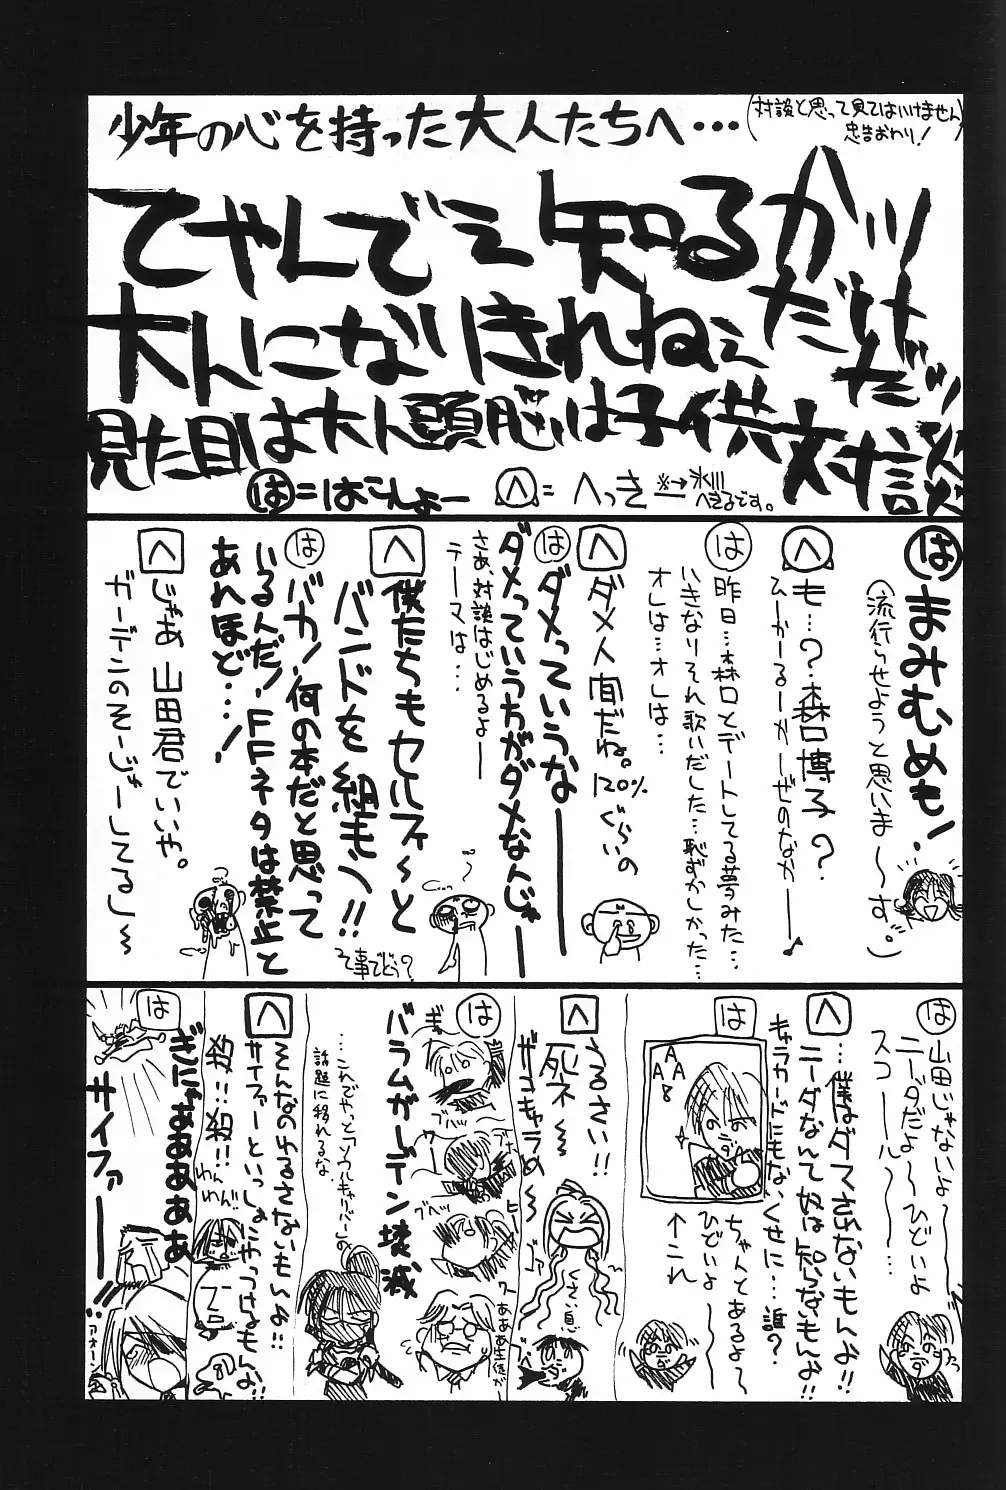 少年の心を持った大人たちへ・・・
(対談と思って見てはいけません
忠告おわり!)
てやんでぇ知るかッ
大人になりきれねぇ
だけだッ
見た目は大人頭脳は子供対談
は=はこんよー
へ=へっき
※→氷川
へきるです。
は まみむめも!
(流行らせようと思いま〜す。)
へ も…?森口博子?
ひーかーるーかーぜのなかー♪
は 昨日…森口とデートしてる夢みた…
いきなりそれ歌いだした…恥ずかしかった…
オレは…オレは…
へ ダメ人間だね。120%ぐらいの
は ダメっていうなーーー
ダメっていう方がダメなんじゃーー
さあ、対談はじめるよー
テーマは…
へ 僕たちもセルフィ〜と
バンドを組もう!!
て事でどう?
は バカ!何の本だと思って
いるんだ!FFネタは禁止と
あれほど…!
へ じゃあ山田君でいいや。
ガーデンのそーじゃーしてるし〜
は 山田じゃないよ〜
ニーダだよ〜ひどいよ
スコール〜…
へ …僕はダマされないもんよ!!
ニーダなんて奴は知らないもんよ!!
キャラカードにもないくせに…誰?
は
A
A A
8
↑コレ
ちゃんとあるよ〜
ひどいよ〜
へ うるさい!!
死ネ〜
ザコキャラめ〜
くさい息
は バラムガーデン壊滅
ぎゃー
ブヘッ
…これでやっとソウルキャリバーの
話題に移れるな
へ そんなのゆるさないもんよ!!
サイファーといっしょにやっつけるもんよ!
わんわん
は ぎにゃああああぁ
サイファーーー!!
アオーン